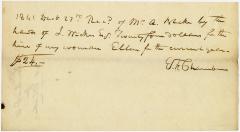 1861 Dec 27th Recd of Mr. A. Wacker by the
hands of J. Wacker Esq. Twenty four dollars for the
hire of my woman Ellen for the current year
$24.—
Chambers